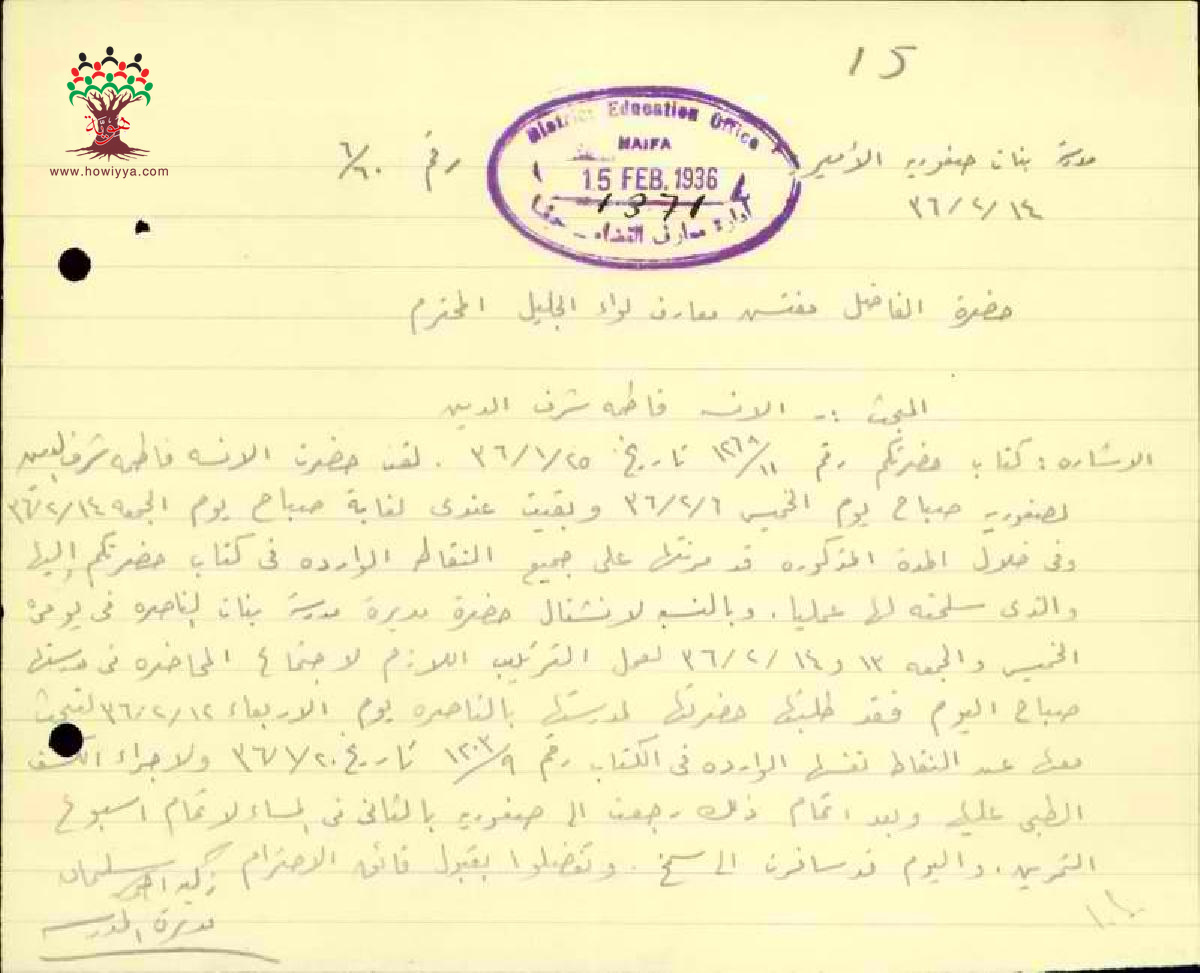 15
هوية
www.howiyya.com
District Education Office
HAIFA
15 FEB. 1936
1371
ادارة معارف القضاء - حيفا
مدرسة بنات صفوريه الأميرية رقم ٦/٦٠
٣٦/٢/١٤
حضرة الفاضل مفتش معارف لواء الجليل المحترم
المبحث :- الانسه فاطمه شرف الدين
الاشاره : كتاب حضرتكم رقم ١٢٦٨/١١ تاريخ ٣٦/١/٢٥ . لقد حضرت الانسه فاطمه شرف الدين
لصفوريه صباح يوم الخميس ٣٦/٢/٦ وبقيت عندى لغاية صباح يوم الجمعه ٣٦/٢/١٤
وفى خلال المدة المذكوره قد مرنتها على جميع النقاط الوارده فى كتاب حضرتكم إليها
والذى سلمته لها عمليا . وبالنسبه لانشغال حضرة مديرة مدرسة بنات الناصره فى يومى
الخميس والجمعه ١٣ و ٣٦/٢/١٤ لعمل الترتيب اللازم لاجتماع المحاضره فى مدرستها
صباح اليوم فقد طلبتها حضرتها لمدرستها بالناصره يوم الاربعاء ٣٦/٢/١٢ لتبحث
معها عن النقاط نفسها الوارده فى الكتاب رقم ١٢٠٣/٩ تاريخ ٣٦/١/٢٠ ولاجراء الكشف
الطبى عليها وبعد اتمام ذلك رجعت الى صفوريه بالثانى فى المساء لاتمام اسبوع
التمرين . واليوم قد سافرت الى سمخ . وتفضلوا بقبول فائق الاحترام
سليمان
مديرة المدرسه